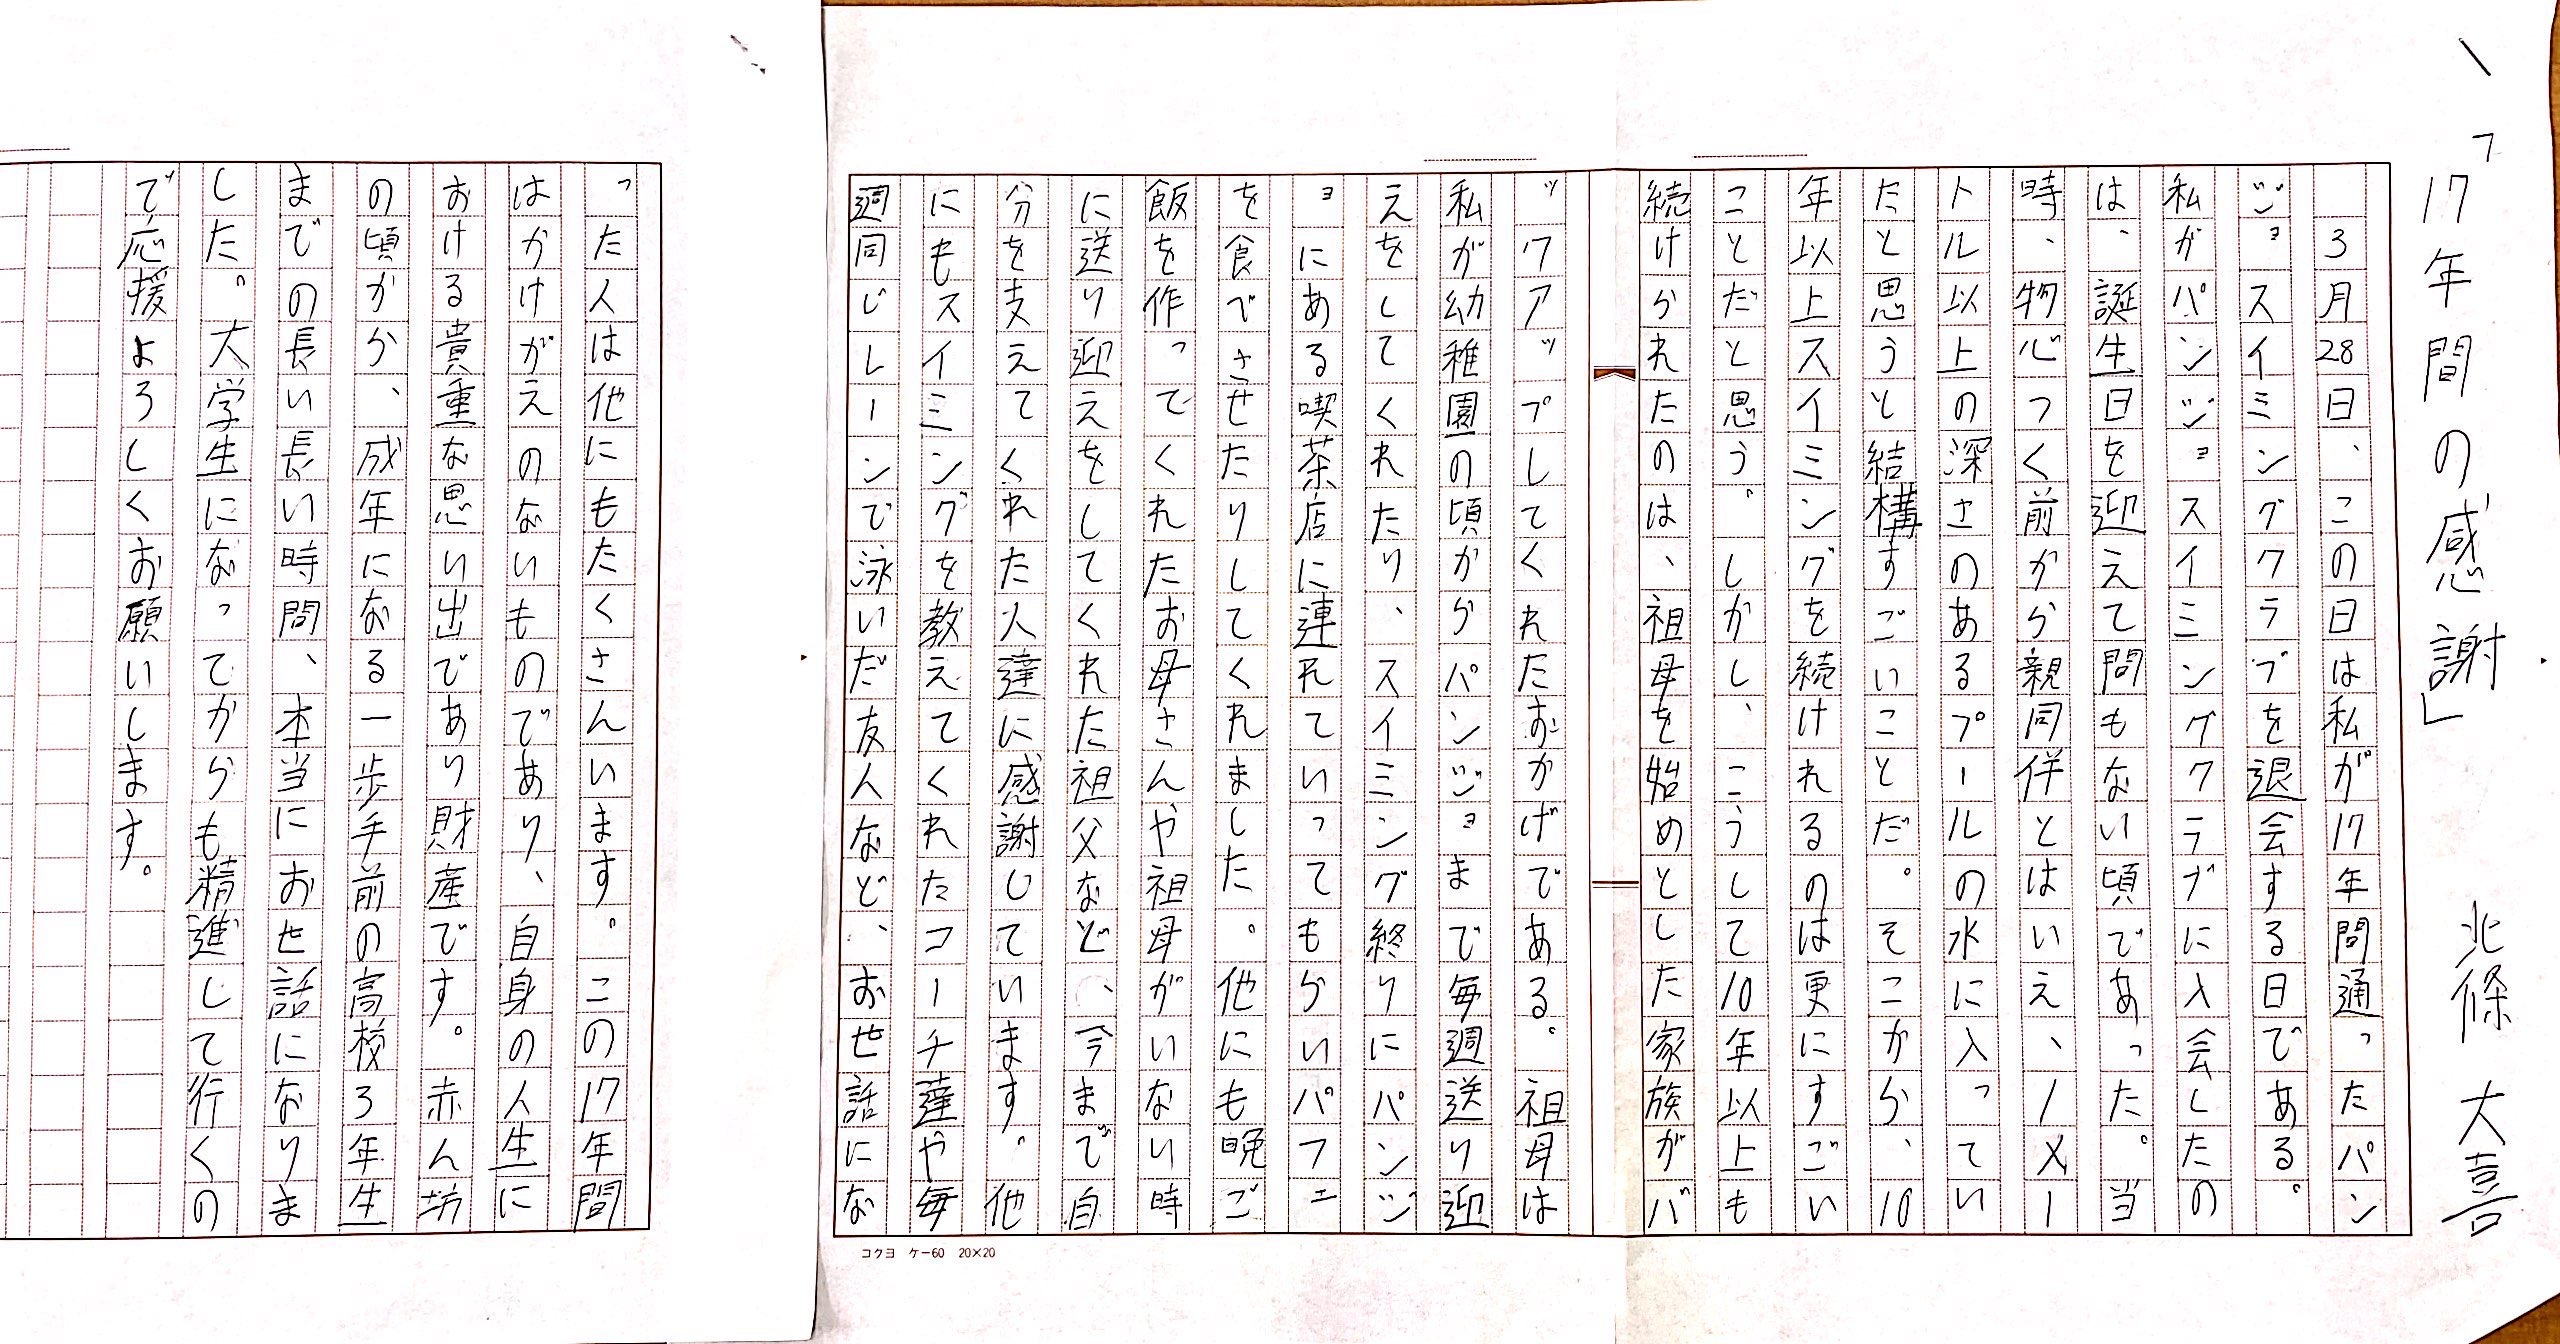 「17年間の感謝」 北條 大喜
3月28日、この日は私が17年間通ったパン
ジョスイミングクラブを退会する日である。
私がパンジョスイミングクラブに入会したの
は、誕生日を迎えて間もない頃であった。当
時、物心つく前から親同伴とはいえ、1メー
トル以上の深さのあるプールの水に入ってい
たと思うと結構すごいことだ。そこから、10
年以上スイミングを続けれるのは更にすごい
ことだと思う。しかし、こうして10年以上も
続けられたのは、祖母を始めとした家族がバ
ックアップしてくれたおかげである。祖母は
私が幼稚園の頃からパンジョまで毎週送り迎
えをしてくれたり、スイミング終りにパンジ
ョにある喫茶店に連れていってもらいパフェ
を食べさせたりしてくれました。他にも晩ご
飯を作ってくれたお母さんや祖母がいない時
に送り迎えをしてくれた祖父など、今まで自
分を支えてくれた人達に感謝しています。他
にもスイミングを教えてくれたコーチ達や毎
週同じレーンで泳いだ友人など、お世話にな
った人は他にもたくさんいます。この17年間
はかけがえのないものであり、自身の人生に
おける貴重な思い出であり財産です。赤ん坊
の頃から、成年になる一歩手前の高校3年生
までの長い長い時間、本当にお世話になりま
した。大学生になってからも精進して行くの
で応援よろしくお願いします。
コクヨ ケー60 20×20